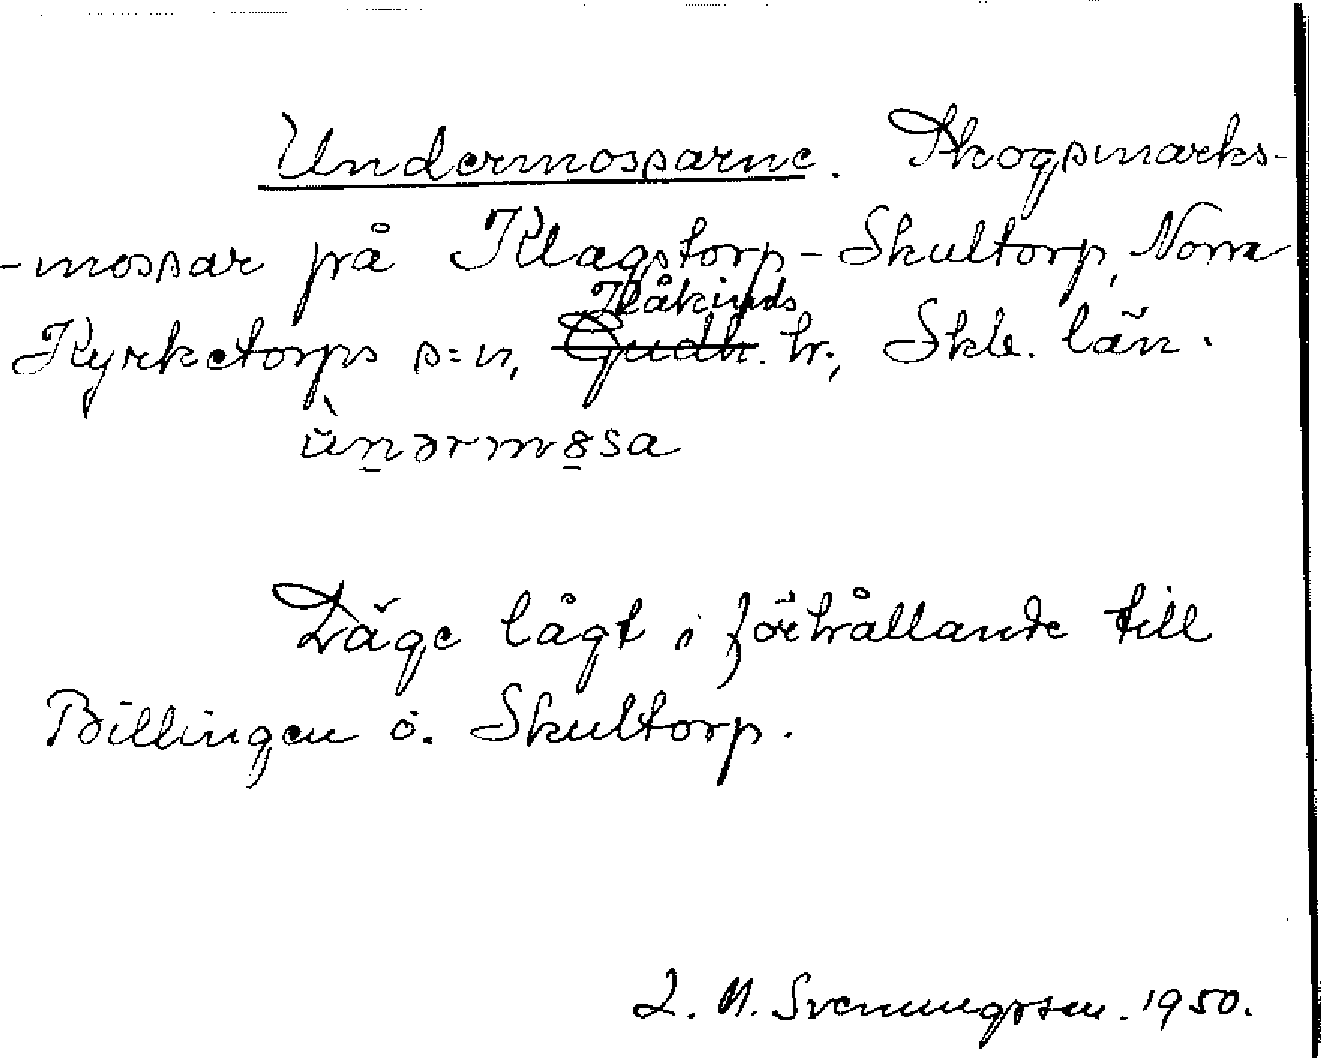 Undermossarne. Skogsmarks-
-mossar på Klagstorp-Skultorp, Norra
Kåkinds
Kyrketorps s:n, Gudh. hr., Skbr. län.
ùn̲ərmo̲sa
Läge lågt i förhållande till
Billingen ö. Skultorp.
L. M. Svenungsson. 1950.